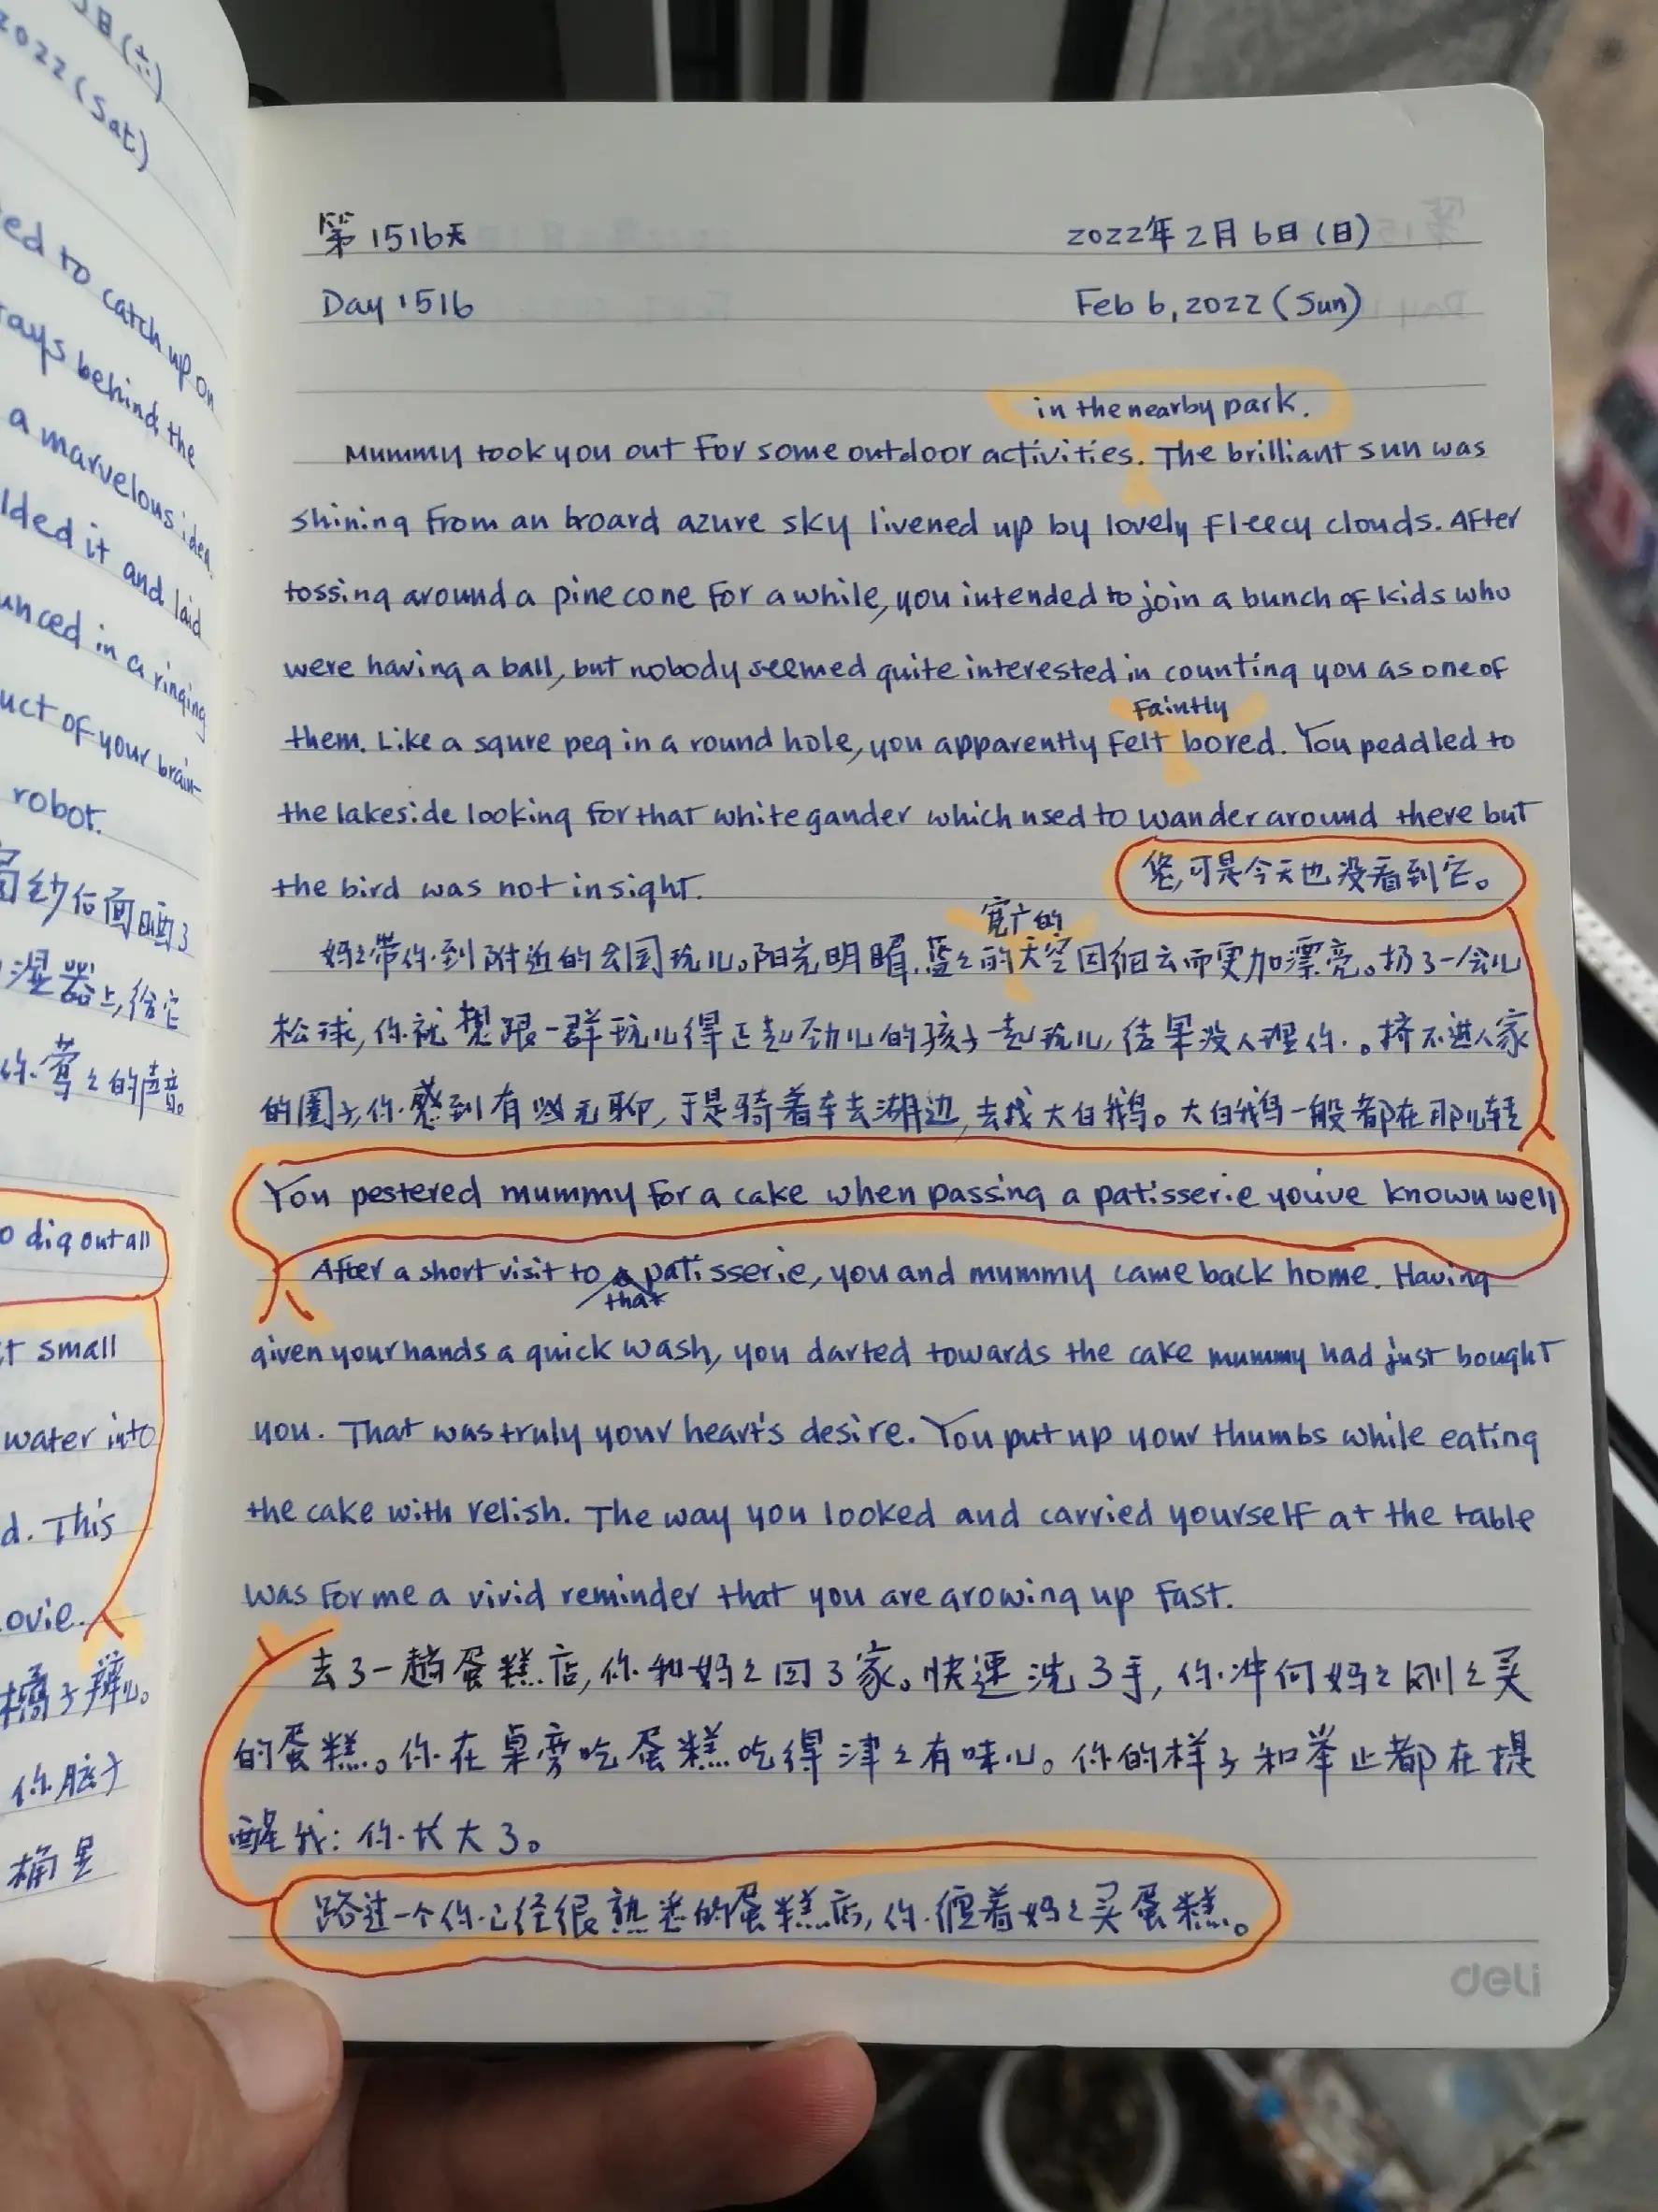 日(六)
2022(Sat)
ed to catch up on
rays behind the
a marvelous idea.
lded it and laid
unced in a ringing
uct of your brain-
robot.
纱后面晒了
湿器上,给它
你莺々的声音。
o dig out all
t small
water into
d. This
ovie.
橘子瓣儿。
你脑子
桶里
第1516天 2022年2月6日(日)
Day 1516 Feb 6, 2022 (Sun)
in the nearby park.
Mummy took you out for some outdoor activities. The brilliant sun was
shining from an broard azure sky livened up by lovely fleecy clouds. After
tossing around a pine cone for a while, you intended to join a bunch of kids who
were having a ball, but nobody seemed quite interested in counting you as one of
faintly
them. Like a squre peg in a round hole, you apparently felt bored. You peddled to
the lakeside looking for that white gander which used to wander around there but
the bird was not in sight. 悠,可是今天也没看到它。
宽广的
妈々带你到附近的公园玩儿。阳光明媚,蓝々的天空因细云而更加漂亮。扔了一会儿
松球,你就想跟一群玩儿得正起劲儿的孩子一起玩儿,结果没人理你。挤不进人家
的圈子,你感到有些无聊,于是骑着车去湖边,去找大白鹅。大白鹅一般都在那儿转
You pestered mummy for a cake when passing a patisserie you've known well
After a short visit to a patisserie, you and mummy came back home. Having
that
given your hands a quick wash, you darted towards the cake mummy had just bought
you. That was truly your heart's desire. You put up your thumbs while eating
the cake with relish. The way you looked and carried yourself at the table
was for me a vivid reminder that you are growing up fast.
去了一趟蛋糕店,你和妈々回了家。快速洗了手,你冲向妈々刚々买
的蛋糕。你在桌旁吃蛋糕吃得津々有味儿。你的样子和举止都在提
醒我:你长大了。
路过一个你已经很熟悉的蛋糕店,你缠着妈々买蛋糕。
deli